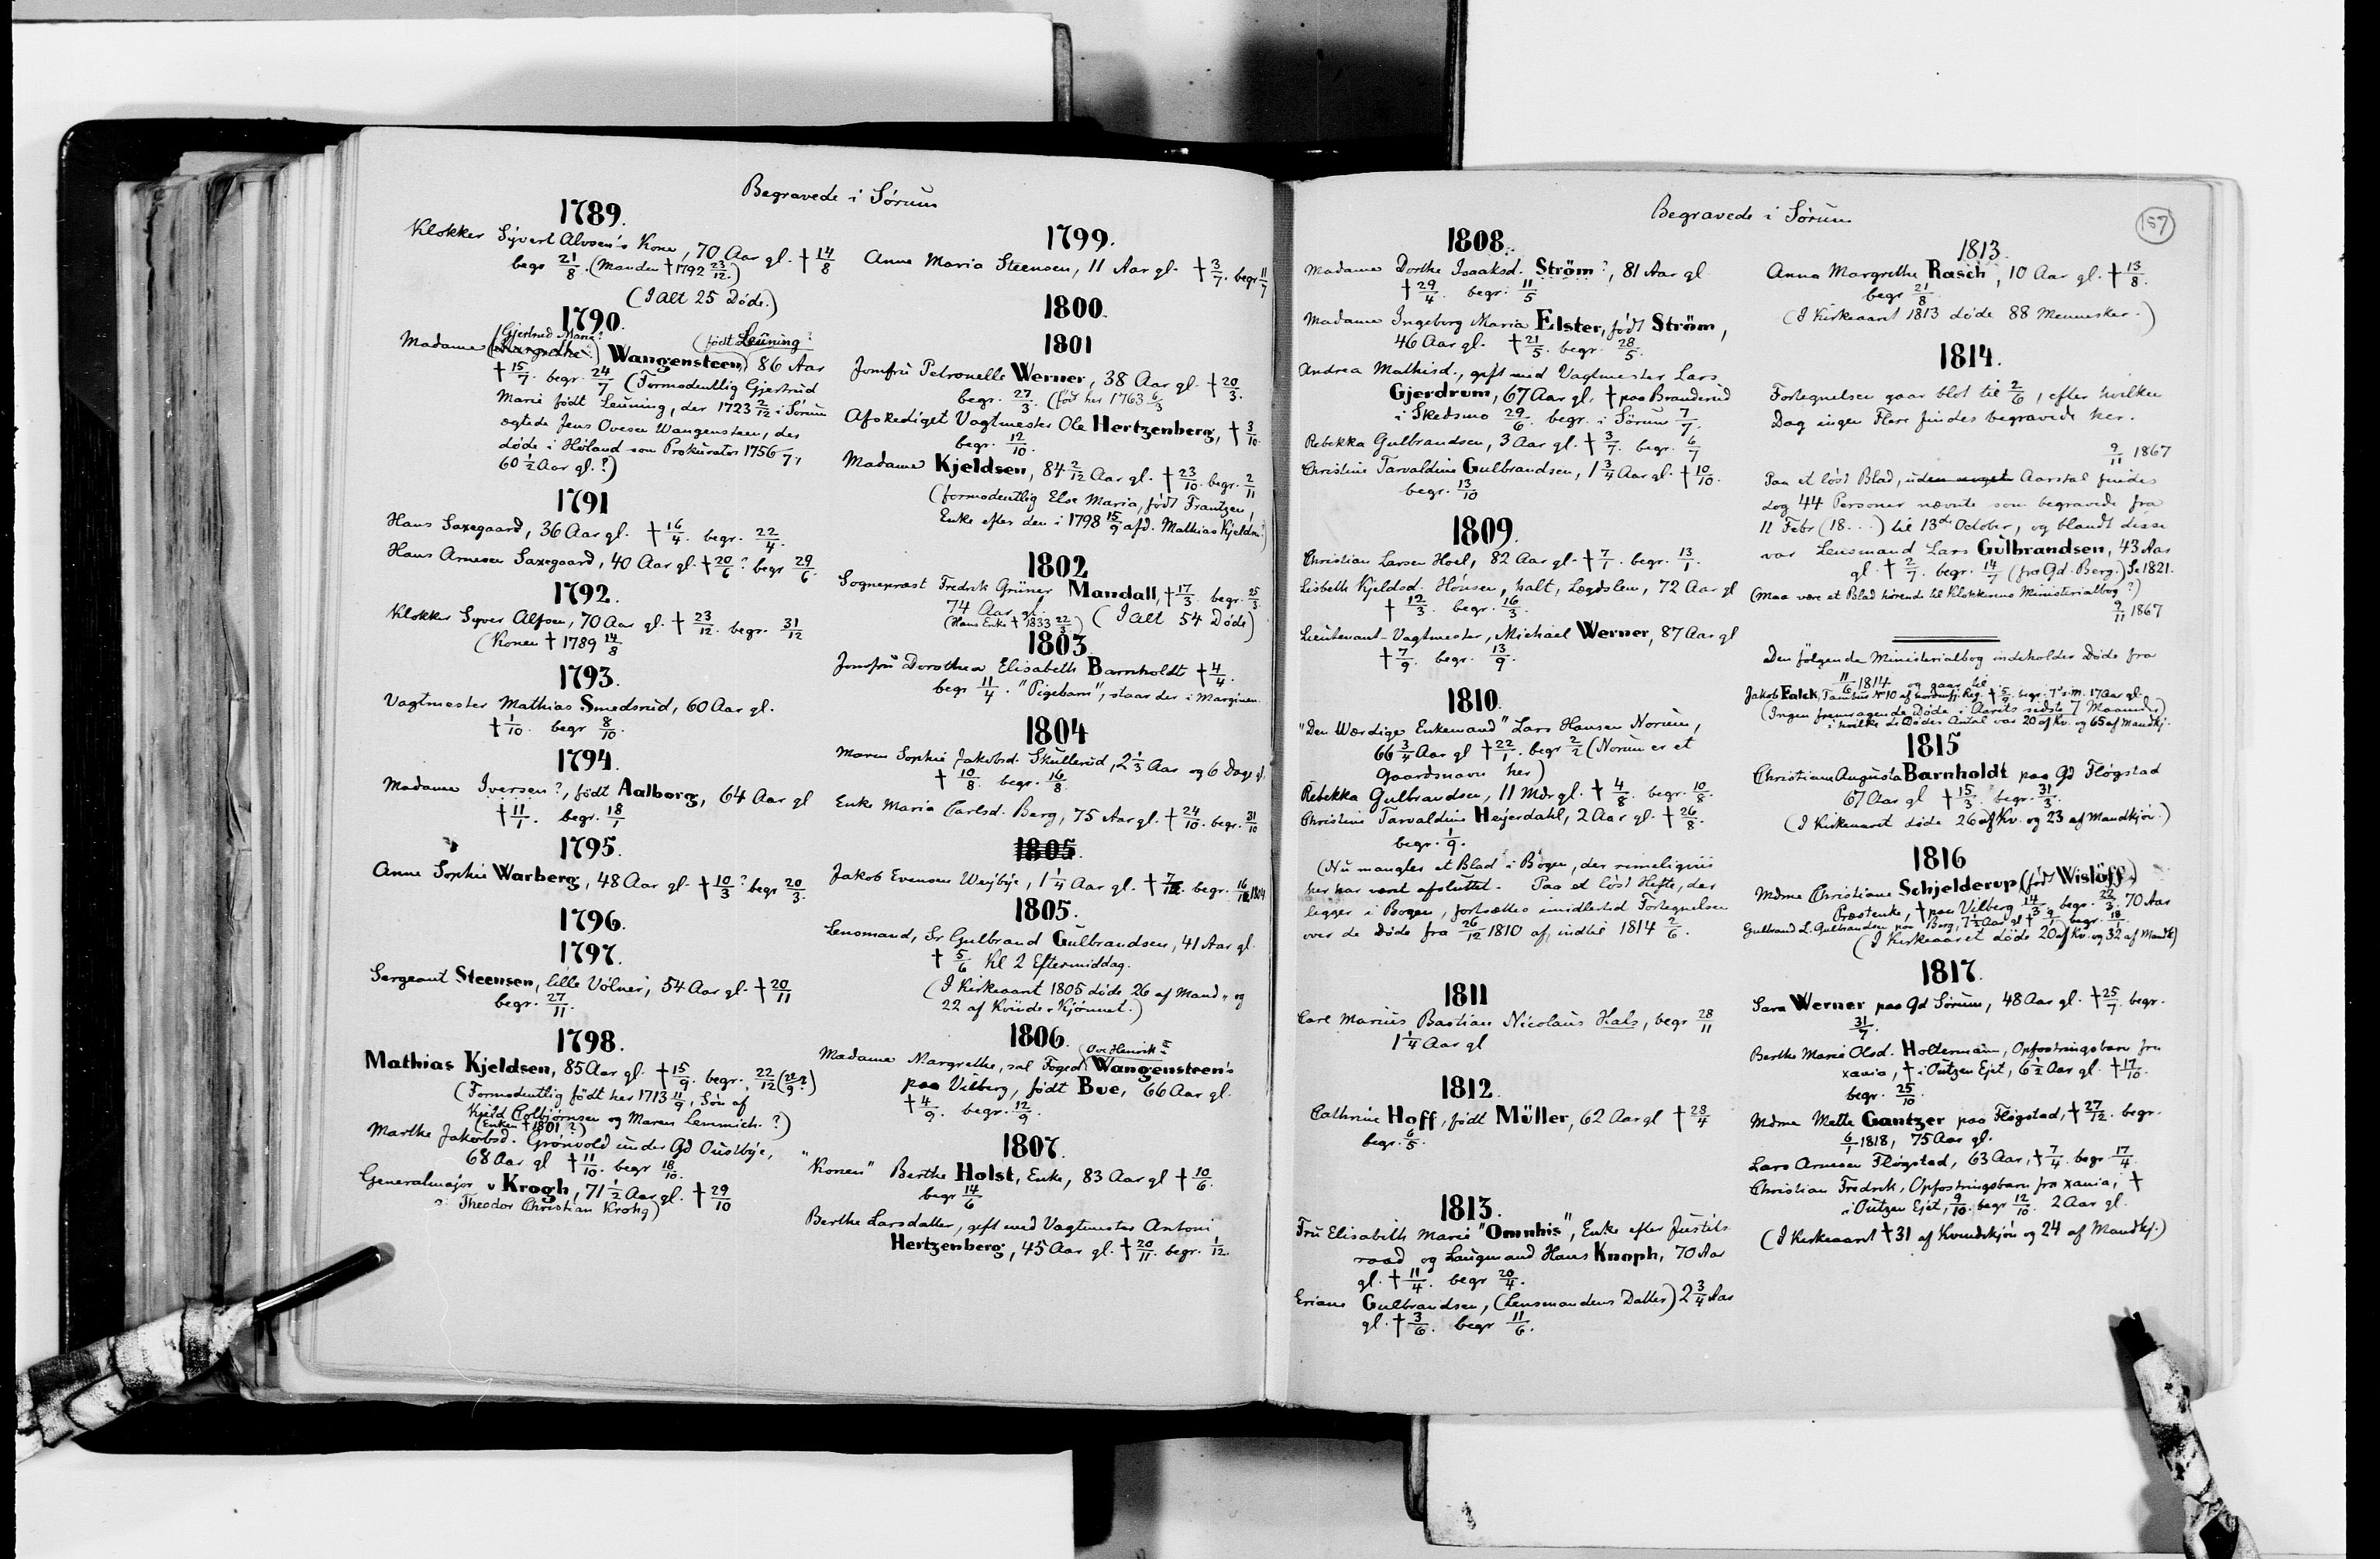 Begravede i Sörum
1789.
Klokker Syvert Alvsen's Kone, 70 Aar gl. † 14/8
begr 21/8. (Manden † 1792 23/12.)
(I Alt 25 Döde.)
1790.
(Gjertrud Maria?
(født Leuning?
Madame Wangensteen, 86 Aar
† 15/7. begr. 24/7 (Formodentlig Gjertrud
Marie født Leuning, der 1723 2/12 i Sörum
ægtede Jens Ovesen Wangensteen, der
døde i Høland som Prokurator 1756
60 1/2 Aar gl.?)
1791
Hans Saxegaard, 36 Aar gl. † 16/4. begr. 22/4.
Hans Arnesen Saxegaard, 40 Aar gl. † 20/6? begr 29/6.
1792.
Klokker Syver Alfsen, 70 Aar gl. † 23/12. begr. 31/12
(Konen † 1789 14/8
1793.
Vagtmester Mathias Smedsrud, 60 Aar gl.
† 1/10. begr 8/10.
1794.
Madame Iversen?, født Aalborg, 64 Aar gl
† 11/1. begr. 18/1
1795.
Anne Sophie Warberg, 48 Aar gl. † 10/3? begr 20/3.
1796.
1797.
Sergeant Steensen, lille Völner, 54 Aar gl. † 20/11
begr. 27/11.
1798.
Mathias Kjeldsen, 85 Aar gl. † 15/9. begr. 22/12 (22/9?)
(Formodentlig født her 1713 11/9, Søn af
Kjeld Colbjørnsen og Maren Lemmich.?)
(Enken † 1801?)
Marthe Jakobsd. Grönvold under Gd Oustbye,
68 Aar gl † 11/10. begr 18/10.
Generalmajor v Krogh, 71 1/2 Aar gl. † 29/10
Theodor Christian Krohg)
1799.
Anne Maria Steensen, 11 Aar gl. † 3/7. begr 11/7
1800.
1801
Jomfru Petronelle Werner, 38 Aar gl. † 20/3.
begr. 27/3. (født her 1763 6/3
Afskediget Vagtmester Ole Hertzenberg, † 3/10.
begr. 12/10.
Madame Kjeldsen, 84 2/12 Aar gl. † 23/10. begr. 2/11
(formodentlig Else Maria, født Frantzen,
Enke efter den i 1798 15/9 afd. Mathias Kjeldsen?)
1802
Sognepræst Fredrik Grüner Mandall, † 17/3. begr. 25/3
74 Aar gl.
(Hans Enke † 1833 22/3) (I Alt 54 Döde)
1803.
Jomfru Dorothea Elisabeth Barnholdt † 4/4.
begr 11/4. "Pigebarn", staar der i Marginen.
1804
Maren Sophie Jakobsd. Skullerud, 2 1/3 Aar og 6 Dage gl.
† 10/8 begr. 16/8.
Enke Maria Carlsd. Berg, 75 Aar gl. † 24/10. begr. 31/10
1805.
Jakob Evensen Weybye, 1 1/4 Aar gl. † 7/12. begr. 16/12 1804
1805.
Lensmand, Sr Gulbrand Gulbrandsen, 41 Aar gl.
† 5/6 Kl 2 Eftermiddag.
(I Kirkeaaret 1805 döde 26 af Mand- og
22 af Kvinde-Kjönnet.)
1806.
(Ove Henrik
Madame Margrethe, sal Foged Wangensteen's
paa Vilberg, født Bue, 66 Aar gl.
† 4/9. begr. 12/9.
1807.
"Konen" Berthe Holst, Enke, 83 Aar gl † 10/6.
begr 14/6
Berthe Larsdatter, gift med Vagtmester Antoni
Hertzenberg, 45 Aar gl. † 20/11. begr. 1/12.
Begravede i Sörum
157
1808.
Madame Dorthe Isaaksd. Ström?, 81 Aar gl
† 29/4. begr. 11/5
Madame Ingeborg Maria Elster, født Ström,
46 Aar gl. † 21/5. begr. 28/5.
Andrea Mathisd., gift med Vagtmester Lars
Gjerdrum, 67 Aar gl. † paa Branderud
i Skedsmo 29/6. begr. i Sörum 7/7.
Rebekka Gulbrandsen, 3 Aar gl. † 3/7. begr. 6/7
Christine Tarvaldine Gulbrandsen, 1 3/4 Aar gl. † 10/10.
begr. 13/10
1809.
Christian Larsen Hoel, 82 Aar gl. † 7/1. begr. 13/1.
Lisbeth Kjeldsd. Hönsen, halt, Lægdslem, 72 Aar gl
† 12/3. begr. 16/3.
Lieutenant-Vagtmester, Michael Werner, 87 Aar gl
† 7/9. begr. 13/9.
1810.
"Den Værdige Enkemand" Lars Hansen Norum,
66 3/4 Aar gl † 22/1. begr 2/2 (Norum er et
Gaardsnavn her)
Rebekka Gulbrandsen, 11 Mdr gl. † 4/8. begr. 10/8.
Christine Tarvaldine Heyerdahl, 2 Aar gl. † 26/8.
begr. 1/9.
(Nu mangler et Blad i Bogen, der rimeligvis
her har været afsluttet. Paa et löst Hefte, der
ligger i Bogen, fortsættes imidlertid Fortegnelsen
over de Döde fra 26/12 1810 af, indtil 1814 2/6.
1811
Carl Marius Bastian Nicolaus Hals, begr 28/11
1 1/4 Aar gl
1812.
Cathrine Hoff, født Müller, 62 Aar gl † 28/4
begr. 6/5.
1813.
Fru Elisabeth Marie "Omnhis", Enke efter Justits
raad og Laugmand Hans Knoph, 70 Aar
gl. † 11/4. begr 20/4.
Eriane Gulbrandsen, (Lensmandens Datter) 2 3/4 Aar
gl. † 3/6. begr 11/6.
1813.
Anna Margrethe Rasch, 10 Aar gl. † 13/8.
begr 21/8.
(I Kirkeaaret 1813 döde 88 Mennesker.)
1814.
Fortegnelsen gaar blot til 2/6, efter hvilken
Dag ingen Flere findes begravede her.
9/11 1867
Paa et löst Blad, uden Aarstal findes
dog 44 Personer nævnte som begravede fra
11 Febr (18...) til 13de October, og blandt disse
var Lensmand Lars Gulbrandsen, 43 Aar
gl. † 2/7. begr. 14/7 (fra Gd. Berg.) Se 1821.
(Maa være et Blad hörende til Klokkerens Ministerialbog?)
9/11 1867
Den følgende Ministerialbog indeholder Döde fra
11/6 1814 og gaar til
Jakob Falck, Tambur No 10 af nordenfj. Reg. † 5/9. begr. 7 s.m. 17 Aar gl.
(Ingen fremragende Döde i Aarets sidste 7 Maaneder)
i hvilke de Dödes Antal var 20 af Kv. og 65 af Mandkj.
1815
Christiane Augusta Barnholdt paa Gd Flögstad
67 Aar gl † 15/3. begr. 31/3.
(I Kirkeaaret döde 26 af Kv. og 23 af Mandkjön.)
1816
Mdme Christiane Schjelderup (født Wislöff)
Præstenke, † paa Vilberg 14/3 begr. 22/3. 70 Aar
Gulbrand L. Gulbrandsen paa Berg, 7 1/2 Aar gl † 9/1 begr. 18/1.
(I Kirkeaaret döde 20 af Kv. og 32 af Mandk)
1817.
Sara Werner paa Gd Sörum, 48 Aar gl. † 25/7. begr.
31/7.
Berthe Marie Olsd. Holtermann, Opfostringsbarn fra
Xania, † i Outzen Ejet, 6 1/2 Aar gl. † 17/10.
begr. 25/10
Mdme Mette Gantzer paa Flögstad, † 27/12. begr.
6/1 1818, 75 Aar gl.
Lars Arnesen Flögstad, 63 Aar, † 7/4. begr 17/4.
Christian Fredrik, Opfostringsbarn fra Xania, †
i Outzen Ejet, 9/10. begr 12/10. 2 Aar gl.
(I Kirkeaaret † 31 af Kvindekjön og 24 af Mandkj.)